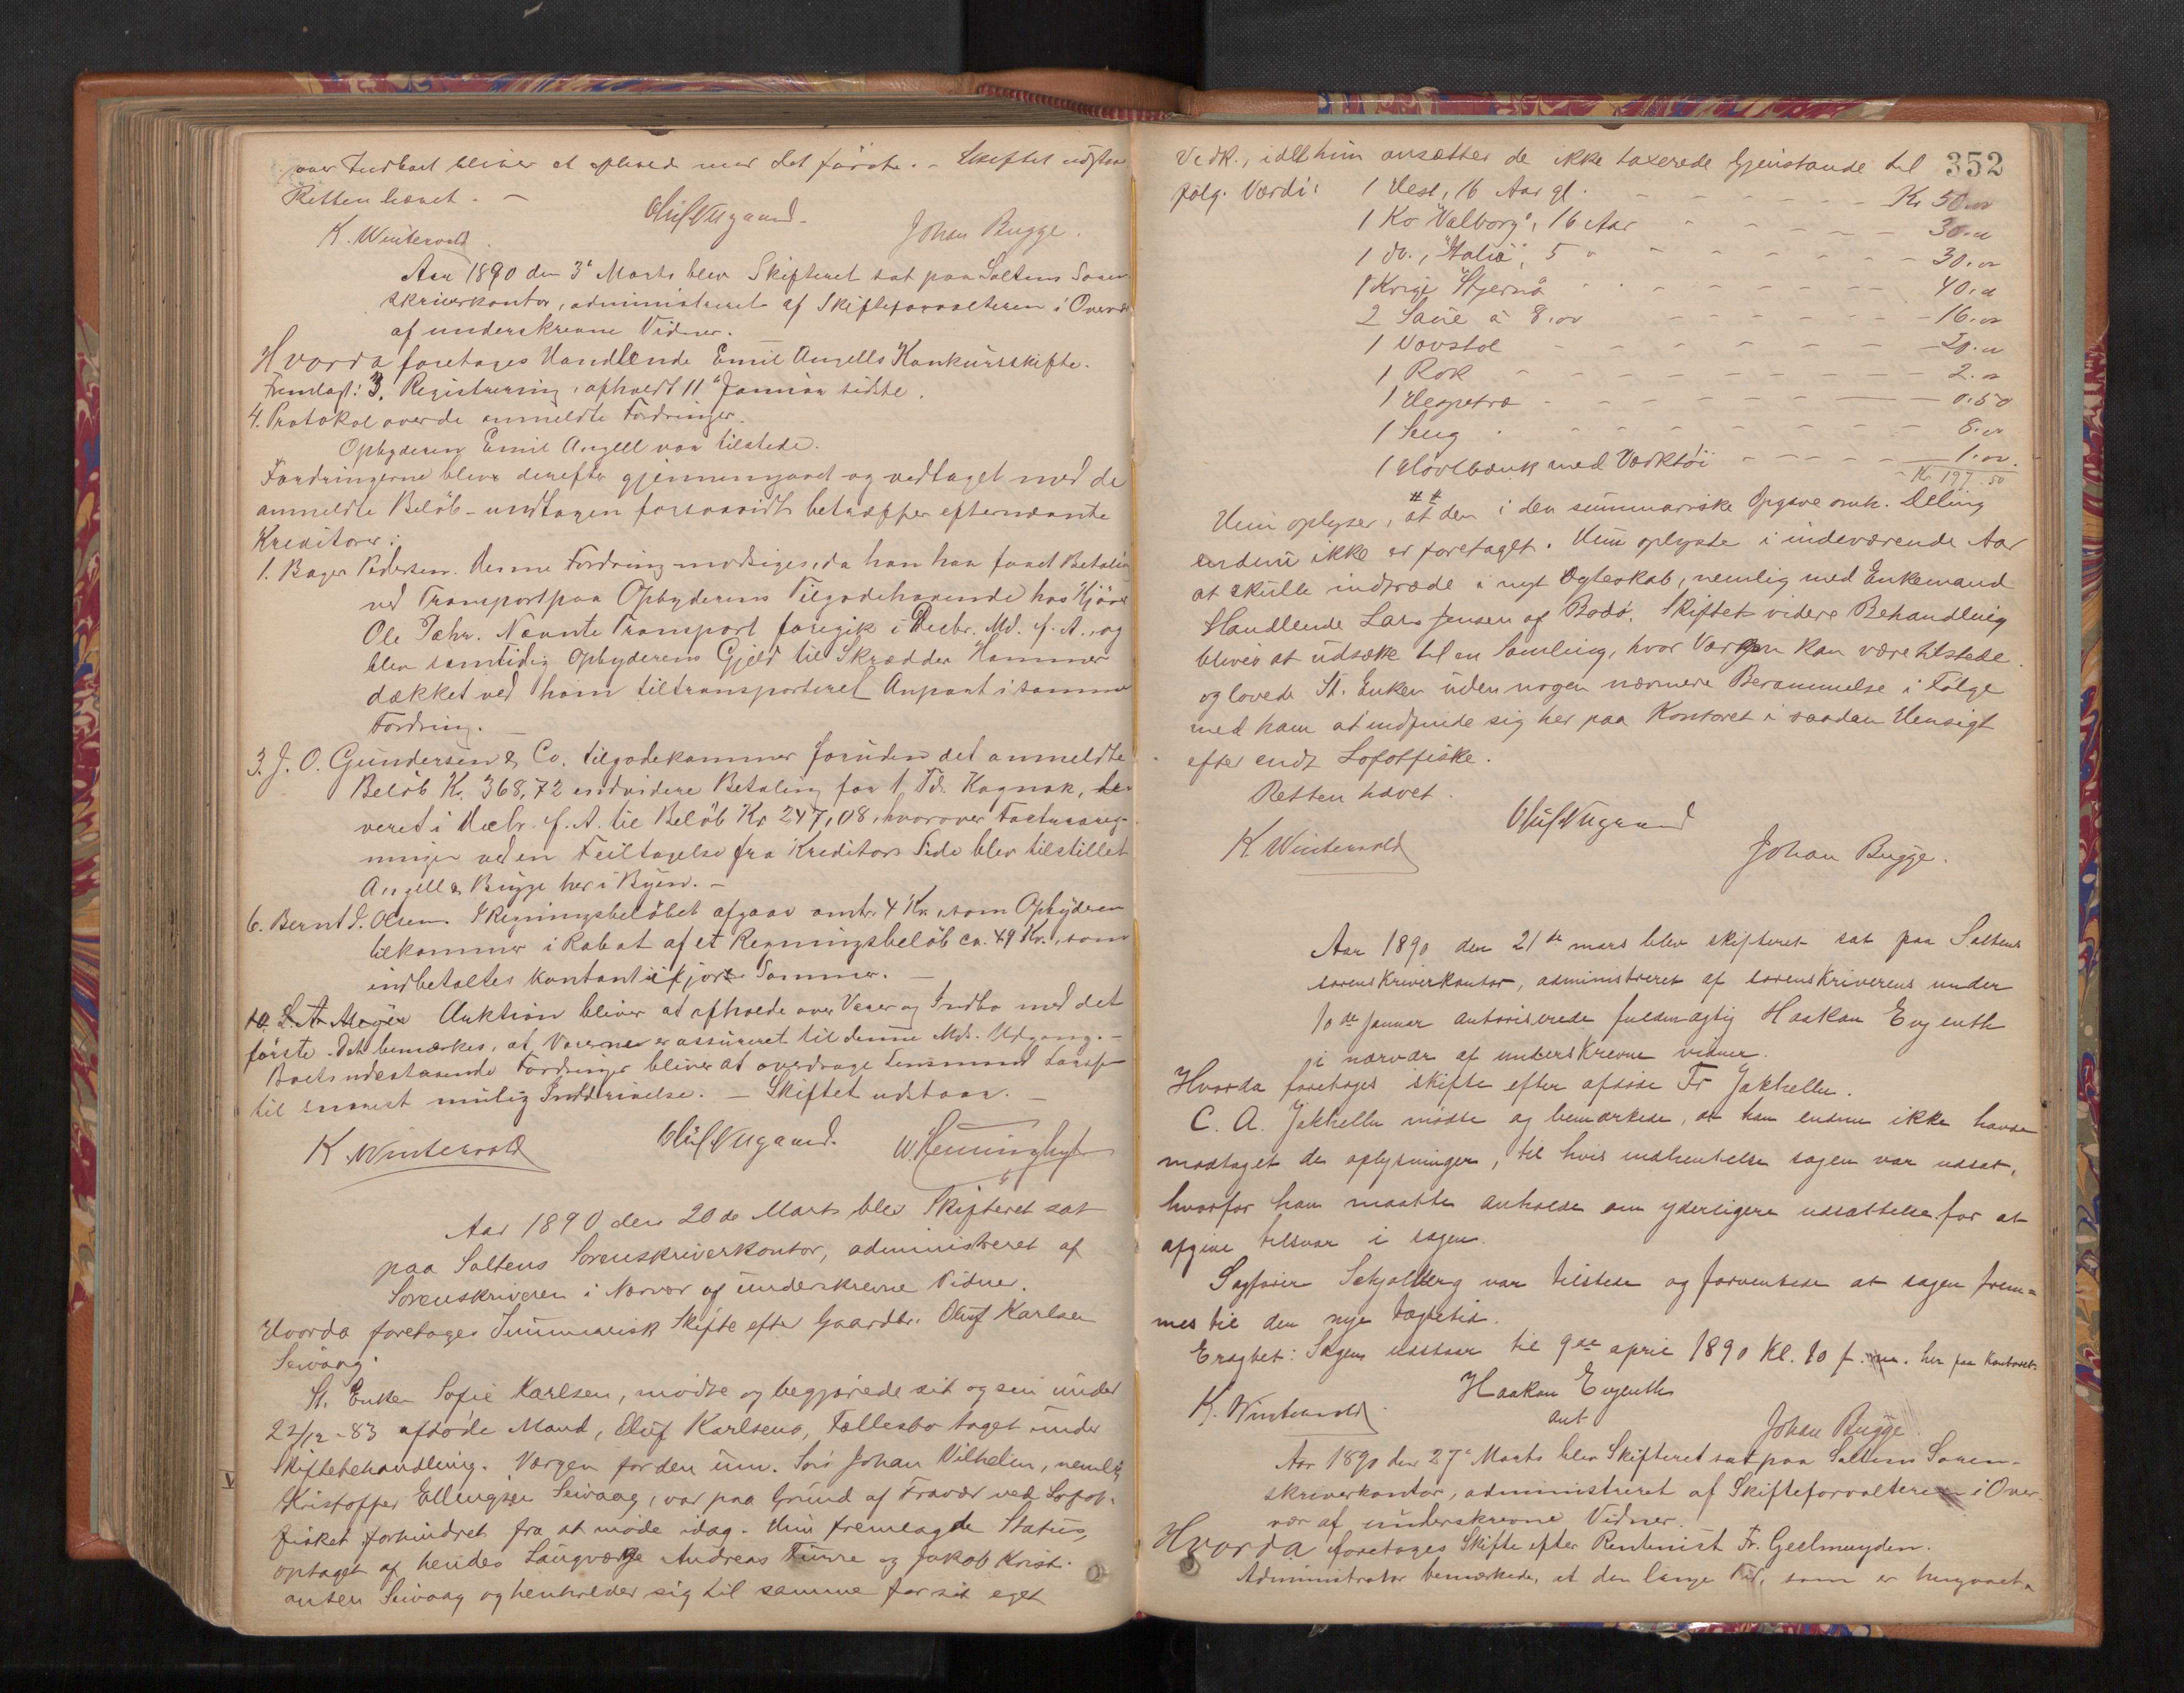 over Indboet bliver at afholde med det første. – Skiftet udstaar
Retten hævet. –
K. Winterwold Oluf Nygaard. Johan Bugge.
Aar 1890 den 3die Marts blev Skifteret sat paa Saltens Soren-
skriverkontor, administreret af Skifteforvalteren i Overvær
af underskrevne Vidner.
Hvorda foretages Handlende Emil Angells Konkursskifte.
Fremlagt: 3. Registrering, afholdt 11te Januar sidste.
4. Protokol over de anmeldte Fordringer.
Opbyderen Emil Angell var tilstede.
Fordringerne blev derefter gjennemgaaet og vedtaget med de
anmeldte Beløb – undtagen forsaavidt betræffer efternævnte
Kreditorer:
1. Bager Pedersen. Denne Fordring modsiges, da han har faaet Betaling
ved Transport paa Opbyderens Tilgodehavende hos
Ole Nævnte Transport foregik i Decbr. Md. f. A., og
blev samtidig Opbyderens Gjeld til Skrædder Hammer
dækket ved ham tiltransporteret Anpart i samme
Fordring. –
3. J. O. Gundersen & Co. tilgodekommer foruden det anmeldte
Beløb Kr. 368,72 endvidere Betaling for 1 Td. Kognak, le-
veret i Decbr. f. A. til Beløb Kr 247,08, hvorover Facturareg-
ningen ved en Feiltagelse fra Kreditors Side blev tilstillet
Angell & Bugge her i Byen. –
6. Bernt J. Olsen. I Regningsbeløbet afgaar omtr. 4 Kr. som Opbyderen
tilkommer i Rabat af et Regningsbeløb ca. 49 Kr., som
indbetaltes kontant ifjor Sommer. –
10. L. A. Meyer Auktion bliver at afholde over Varer og Indbo med det
første. Det bemærkes, at Varerne er assureret til denne Mds. Udgang. –
Boets udestaaende Fordringer bliver at overdrage Lensmand
til snarest mulig Inddrivelse. – Skiftet udstaar. –
K. Winterwold Oluf Nygaard. W.
Aar 1890 den 20de Marts blev Skifteret sat
paa Saltens Sorenskriverkontor, administreret af
Sorenskriveren i Nærvær af underskrevne Vidner.
Hvorda foretages Summarisk Skifte efter Gaardbr. Oluf Karlsen
Seivaag.
St. Enken Sofie Karlsen, mødte og begjærede sit og sin under
22/12 – 83 afdøde Mand, Oluf Karlsens, Fællesbo taget under
Skiftebehandling. Værgen for den um. Søn Johan Vilhelm, nemlig
Kristoffer Ellingsen Seivaag, var paa Grund af Fravær ved Lofot-
fisket forhindret fra at møde idag. Hun fremlagde Status,
optaget af hendes Laugværge Andreas Tuvre og Jakob Kristi-
ansen Seivaag og henholder sig til samme for sit eget
352
Vedk., idet hun ansætter de ikke taxerede Gjenstande til
følg. Værdi: 1 Hest, 16 Aar gl. – – – – – Kr 50.00
1 Ko "Valborg", 16 Aar – – – – – 30.00
1 do., "Stalia", 5 " – – – – – 30.00
1 Kvige "Stjerna" – – – – – 40.00
2 Saue à 8.00 – – – – – 16.00
1 Vævstol – – – – – 20.00
1 Rok – – – – – 2.00
1 Hespetræ – – – – – 0.50
1 Seng – – – – – 8.00
1 Høvlbænk med Værktøi – – – – 1.00
Kr. 197.50
Hun oplyser, at den i den summariske Opgave omh. Deling
endnu ikke er foretaget. Hun oplyste i indeværende Aar
at skulle indtræde i nyt Ægteskab, nemlig med Enkemand
Handlende Lars Jensen af Bodø. Skiftet videre Behandling
bliver at udsætte til en Samling, hvor Værgen kan være tilstede
og lovede St. Enken uden nogen nærmere Berammelse i Følge
med ham at indfinde sig her paa Kontoret i saadan Hensigt
efter endt Lofotfiske.
Retten hævet.
K. Winterwold Oluf Nygaard Johan Bugge.
Aar 1890 den 21de mars blev skifteret sat paa Saltens
sorenskriverkontor, administreret af sorenskriverens under
10de januar autoriserede fuldmægtig Haakon Evjenth
i nærvær af underskrevne vidner.
Hvorda foretages skifte efter afdøde Fr Jakhelln.
C. A. Jakhelln mødte og bemærkede, at han endnu ikke havde
modtaget de oplysninger, til hvis indhentelse sagen var udsat,
hvorfor han maatte anholde om yderligere udsættelse for at
afgive tilsvar i sagen.
Sagfører Schjølberg var tilstede og forventede at sagen frem-
mes til den nye tægtetid.
Eragtet: Sagen udstaar til 9de april 1890 Kl. 10 f. m. her paa Kontoret.
K. Winterwold Haakon Evjenth Johan Bugge
aut
Aar 1890 den 27de Marts blev Skifteret sat paa Saltens Soren-
skriverkontor, administreret af Skifteforvalteren i Over-
vær af underskrevne Vidner.
Hvorda foretages Skifte efter Rentenist Fr. Geelmuyden.
Administrator bemærkede, at den lange Tid, som er hengaaet